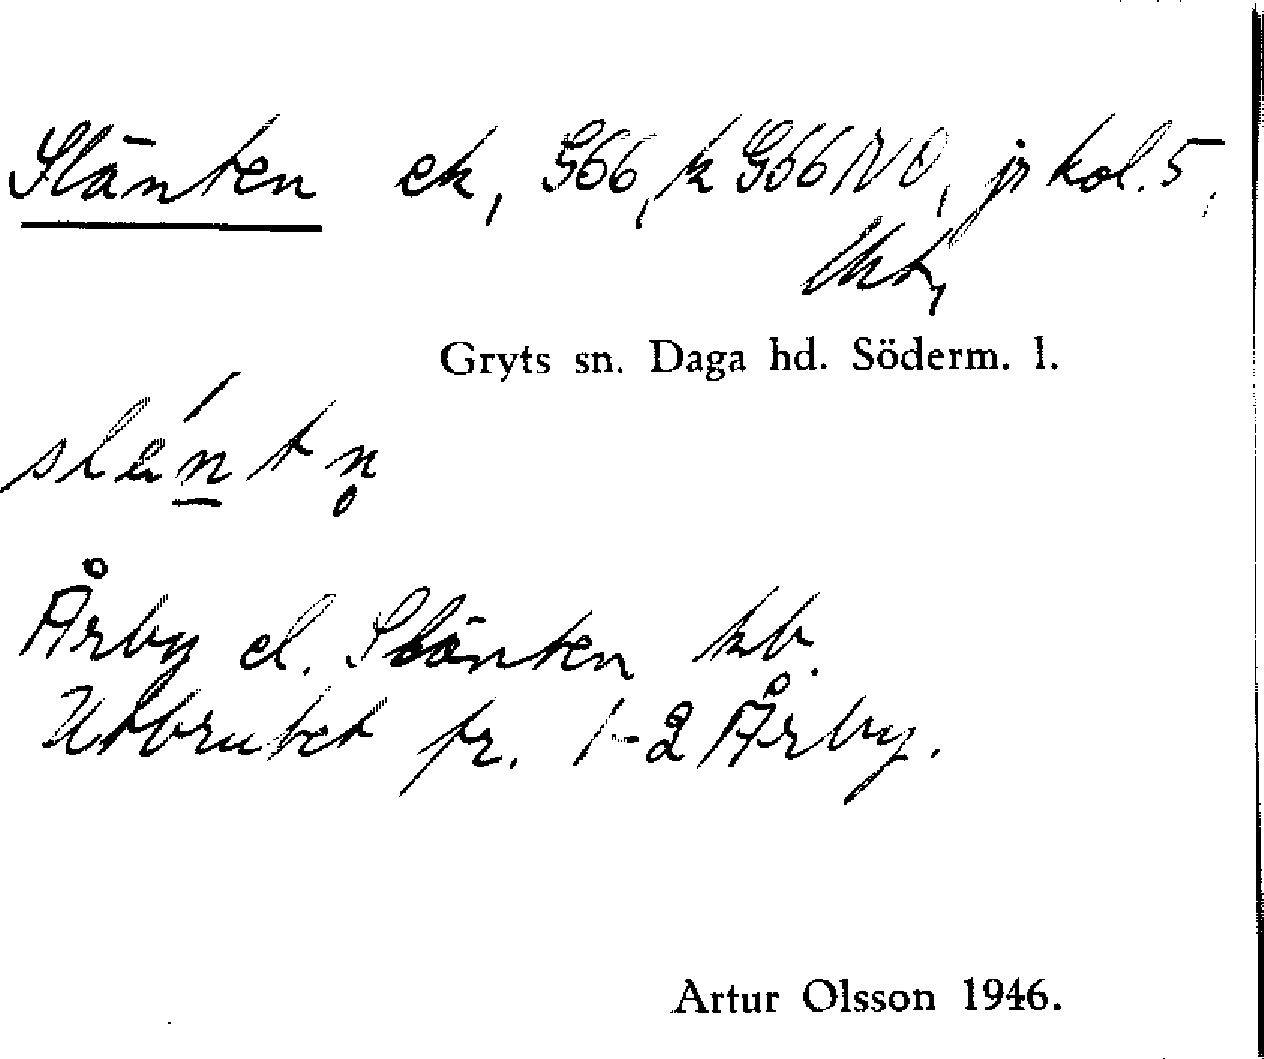 Slänten ek, G66, k G66NO, jr kol. 5,
Gryts sn. Daga hd. Söderm. l.
slä́nt n̥
Årby el. Slänten kb.
Utbrutet fr. 1-2 Årby.
Artur Olsson 1946.